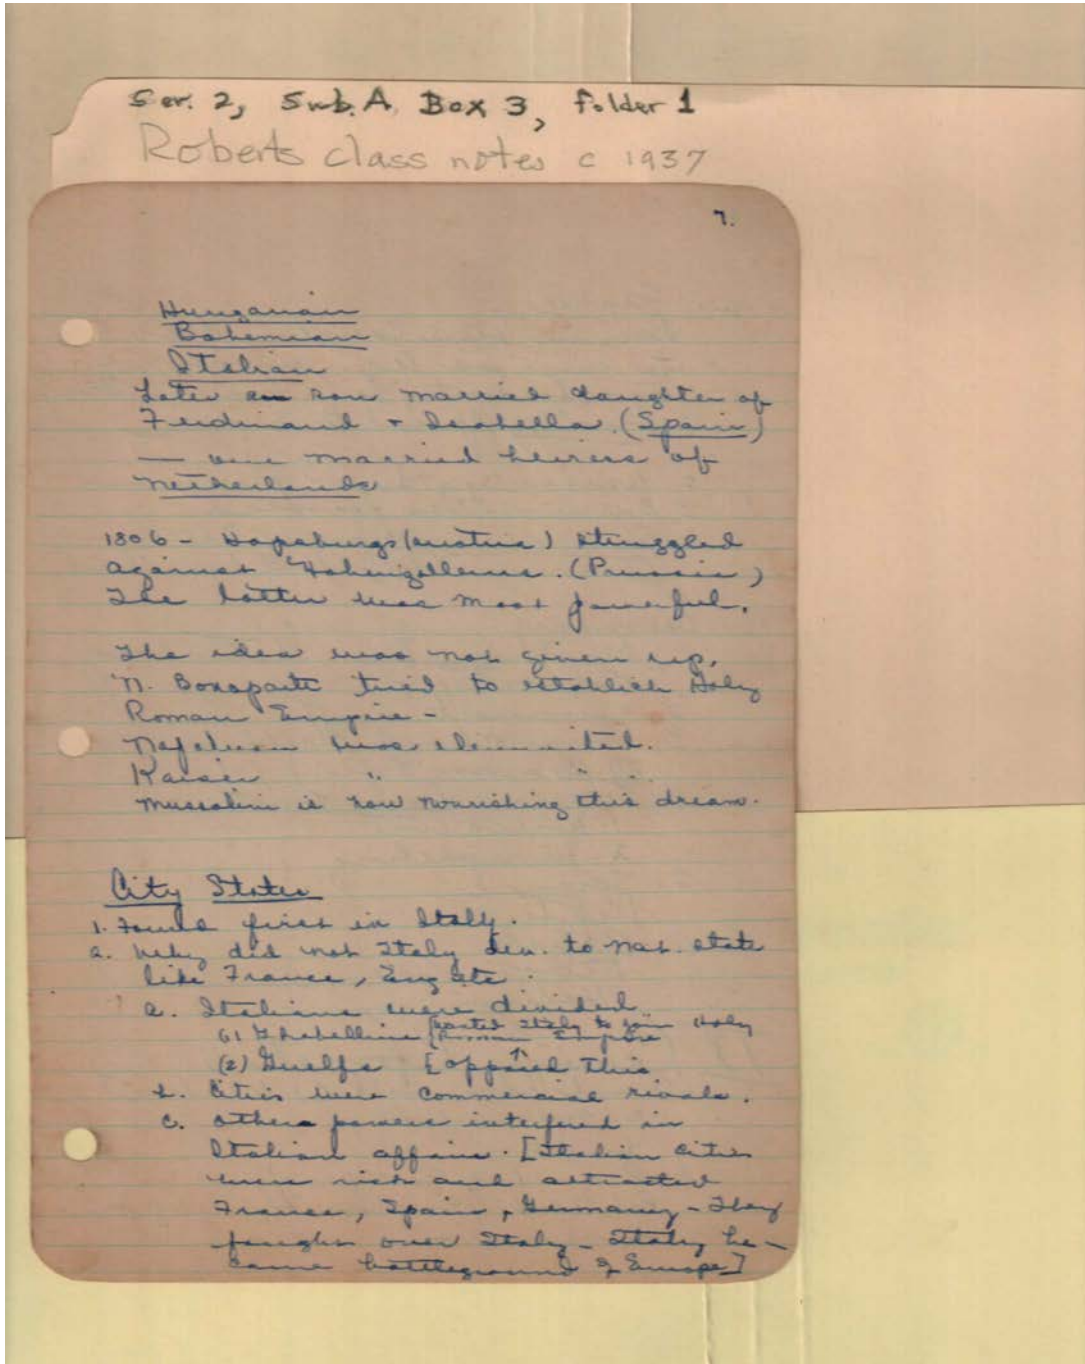 Ser. 2, Sub. A, Box 3, Folder 1
Roberts class notes c 1937
7.
Hungarian
Bohemian
Italian
Later son married daughter of
Ferdinand + Isabella. (Spain)
— one married heiress of
Netherlands
1806 - Hapsburgs (Austria) struggled
against Hohenzollerns. (Prussia)
The latter was most powerful.
The idea was not given up.
N. Bonaparte tried to establish Holy
Roman Empire -
Napoleon was eliminated.
Kaiser " "
Mussolini is now nourishing this dream.
City States
1. Found first in Italy.
2. Why did not Italy dev. to nat. state
like France, Eng etc.
a. Italians were divided.
(1) Ghibelline [wanted Italy to join Holy
Roman Empire
(2) Guelfs [opposed this
b. Cities were commercial rivals.
c. Others powers interfered in
Italian affairs. [Italian cities
were rich and attracted
France, Spain, + Germany - They
fought over Italy - Italy be-
came battleground of Europe]